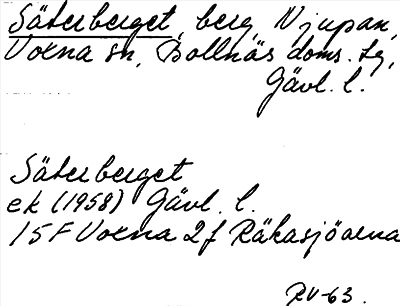 Säterberget, berg, N Njupan,
Voxna sn, Bollnäs doms. tg,
Gävl. l.
Säterberget
ek (1958) Gävl. l.
15F Voxna 2f Räkasjöarna
RV-63.